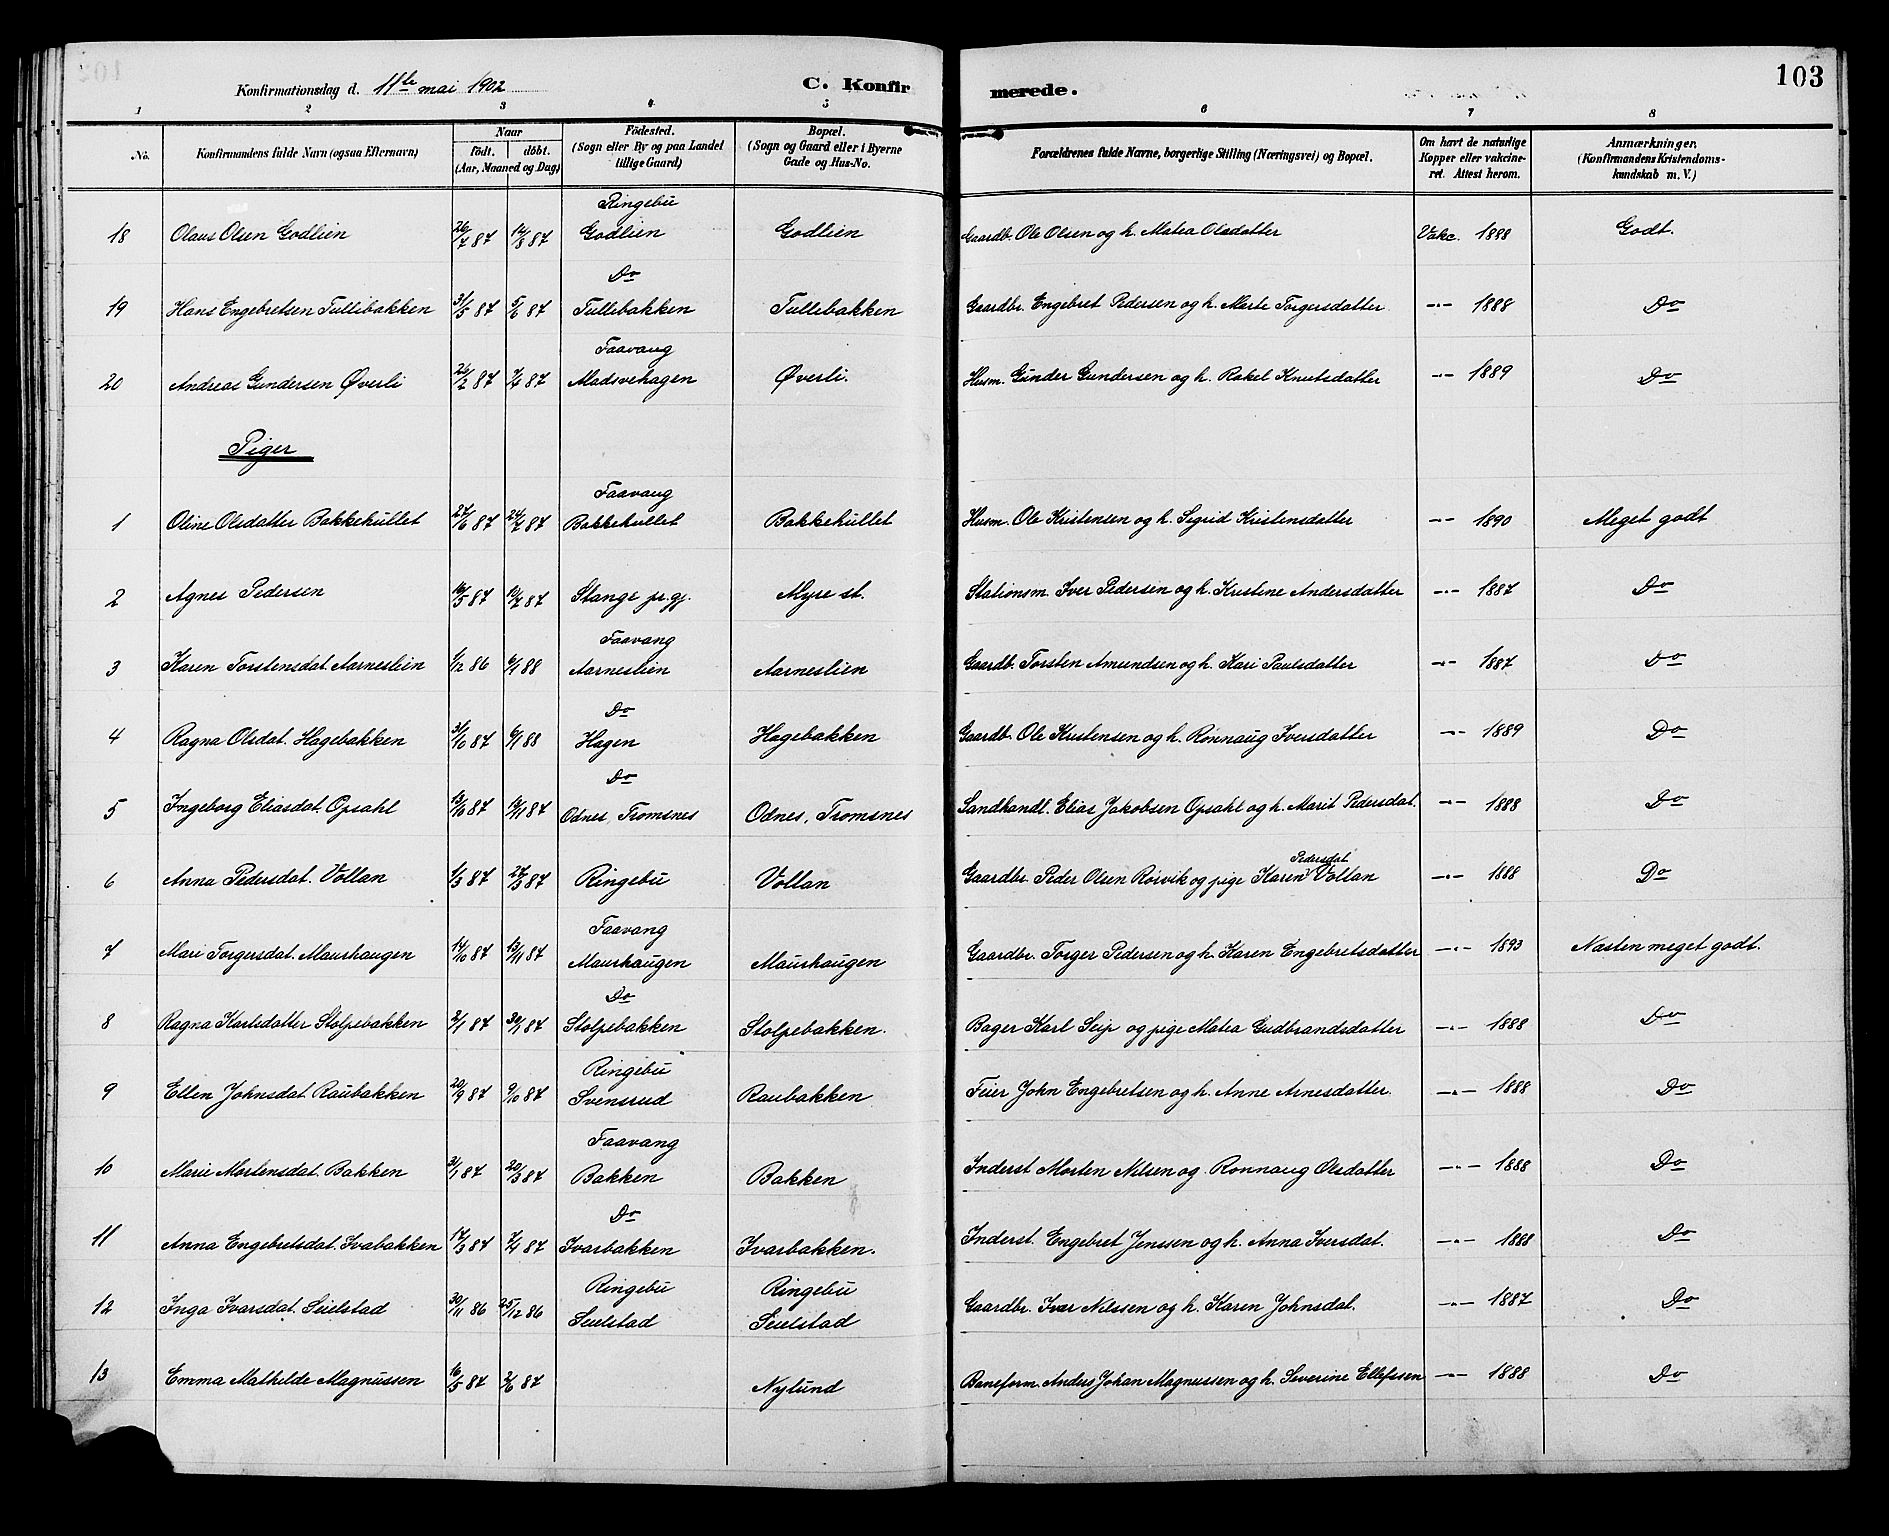 103
Konfirmationsdag d. 11te mai 1902 C. Konfirmerede.
1 2 3 4 5 6 7 8
No. Konfirmandens fulde Navn (ogsaa Efternavn) Naar födt. döbt. (Aar, Maaned og Dag) Födested. (Sogn eller By og paa Landet tillige Gaard) Bopæl. (Sogn og Gaard eller i Byerne Gade og Hus-No. Forældrenes fulde Navne, borgerlige Stilling (Næringsvei) og Bopæl. Om havt de naturlige Kopper eller vakcineret. Attest herom. Anmærkninger. (Konfirmandens Kristendomskundskab m. V.)
18 Olaus Olsen Godlien 26/7 87 14/8 87 Ringebu Godlien Godlien Gaardb. Ole Olsen og h. Matea Olsdatter Vakc. 1888 Godt.
19 Hans Engebretsen Tullibakken 31/5 87 5/6 87 Do Tullibakken Tullibakken Gaardbr. Engebret Pedersen og h. Marte Torgersdatter -"- 1888 Do
20 Andreas Gundersen Øverli 26/2 87 7/4 87 Faavang Madsvehagen Øverli. Husm. Gunder Gundersen og h. Rakel Knutsdatter -"- 1889 Do
Piger
1 Oline Olsdatter Bakkehullet 27/6 87 24/7 87 Faavang Bakkehullet Bakkehullet Husm. Ole Kristensen og h. Sigrid Kristensdatter -"- 1890 Meget godt
2 Agnes Pedersen 16/5 87 10/7 87 Stange pr.gj. Myre st. Stationsm. Iver Pedersen og h. Kristine Andersdatter -"- 1887 Do
3 Karen Torstensdat. Aarneslien 1/12 86 6/1 88 Faavang Aarneslien Aarneslien Gaardb. Torsten Amundsen og h. Kari Paulsdatter -"- 1887 Do
4 Ragna Olsdat. Hagebakken 31/10 87 6/1 88 Do Hagen Hagebakken Gaardb. Ole Kristensen og h. Rønnaug Iversdatter -"- 1889 Do
5 Ingeborg Eliasdat. Opsahl 13/10 87 13/11 87 Do Odnes, Tromsnes Odnes, Tromsnes Landhandl. Elias Jakobsen Opsahl og h. Marit Pedersdat. -"- 1888 Do
6 Anna Pedersdat. Vollan 1/3 87 27/3 87 Ringebu Vollan Gaardbr. Peder Olsen Röisvik og pige Karen Pedersdat. Vollan -"- 1888 Do
7 Mari Torgersdat. Maurhaugen 14/10 87 13/11 87 Faavang Maurhaugen Maurhaugen Gaardbr. Torger Pedersen og h. Karen Engebretsdatter -"- 1893 Næsten meget godt.
8 Ragna Karlsdatter Stolpebakken 2/1 87 30/1 87 Do Stolpebakken Stolpebakken. Bager Karl Seip og pige Matea Gudbrandsdatter -"- 1888 Do
9 Ellen Johnsdat. Raubakken 20/9 87 9/10 87 Ringebu Svensrud Raubakken Feier John Engebretsen og h. Anne Arnesdatter. -"- 1888 Do
10 Marie Mortensdat. Bakken 31/1 87 20/3 87 Faavang Bakken Bakken Inderst Morten Nilsen og Rønnaug Olsdatter -"- 1888 Do
11 Anna Engebretsdat. Ivabakken 17/3 87 7/4 87 Do Ivarbakken Ivarbakken. Inderst. Engebret Jenssen og h. Anna Iversdat. -"- 1888 Do
12 Inga Ivarsdat. Seielstad 30/11 86 25/12 86 Ringebu Seielstad Ringebu Seielstad Gaardbr. Ivar Nilssen og h. Karen Johnsdat. -"- 1887 Do
13 Emma Mathilde Magnussen 16/5 87 2/6 87 Nylund Baneform. Anders Johan Magnussen og h. Severine Ellefssen -"- 1888 Do